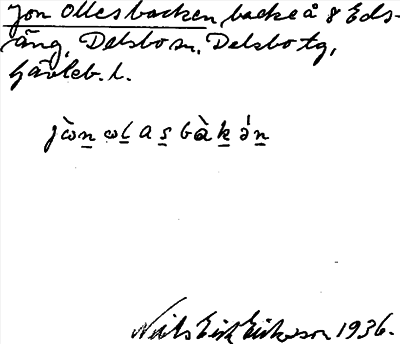 Jon Ollesbacken, backe å 8 Eds-
äng, Delsbo sn, Delsbo tg,
Gävleb. l.
jὼn ωl a s bàk ə́n
Nils Erik Eriksson 1936.